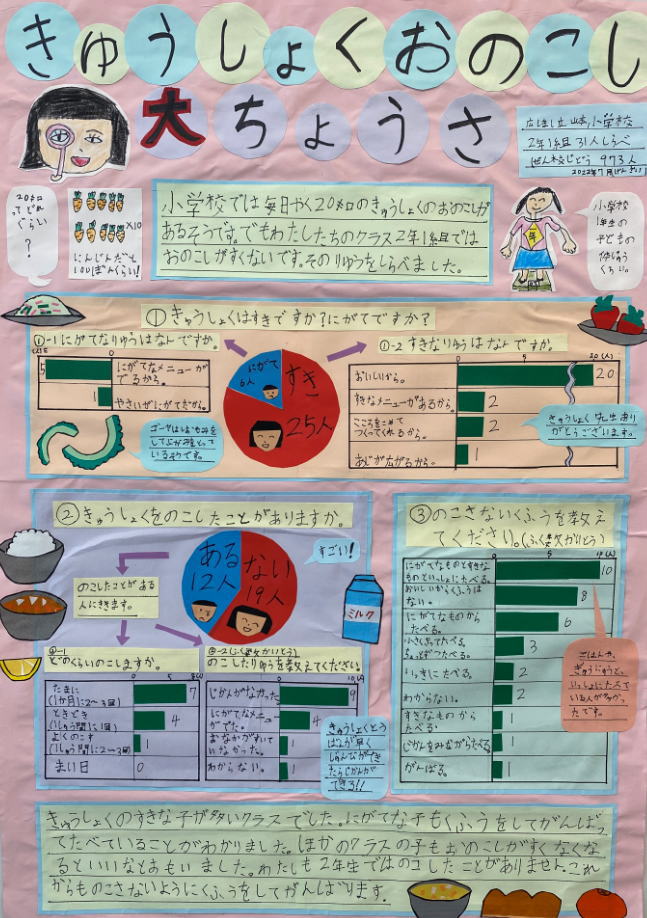 きゅうしょくおのこし
大ちょうさ
小学校
2年1組 31人しらべ
ぜん校じどう 973人
2022年7月
20キロ
ってどれ
ぐらい
?
×10
にんじんだと
100ぽんくらい!
小学校では毎日やく20キロのきゅうしょくのおのこしが
あるそうです。でもわたしたちのクラス2年1組では
おのこしがすくないです。そのりゆうをしらべました。
小学校
1年生の
子どもの
体じゅう
くらい。
①きゅうしょくはすきですか?にがてですか?
①-1 にがてなりゆうはなんですか。
5
にがてなメニューが
でるから。
1
やさいがにがてだから。
にがて
6人
すき
25人
①-2 すきなりゆうはなんですか。
0 5 20(人)
おいしいから。
20
すきなメニューがあるから。
2
こころをこめて
つくってくれるから。
2
あじが広がるから。
1
きゅうしょく先生あり
がとうございます。
②きゅうしょくをのこしたことがありますか。
ある
12人
ない
19人
すごい!
のこしたことがある
人にききます。
ミルク
②-1
どのくらいのこしますか。
たまに
(1か月に2〜3回)
7
ときどき
(1しゅう間に1回)
4
よくのこす
(1しゅう間に2〜3回)
1
まい日
0
②-2(ふく数かいとう)
のこしたりゆうを教えてください。
じかんがなかった
9
にがてなメニュー
がでた。
4
おなかがすいて
いなかった。
1
わからない。
1
きゅうしょくとう
ばんが早く
じゅんびができ
たらじかんが
できる!!
③のこさないくふうを教え
てください。(ふく数かいとう)
0 5 10(人)
にがてなものとすきな
ものといっしょにたべる。
10
おいしいからくふうは
ない。
8
にがてなものから
たべる。
6
小さくしてたべる。
ちょっとずつたべる。
3
いっきにたべる。
2
わからない。
2
すきなものから
たべる。
1
じかんをみながらたべる
1
がんばる。
1
ごはんや、
ぎゅうにゅうと、
いっしょにたべて
いる人が多かっ
たです。
きゅうしょくのすきな子が多いクラスでした。にがてな子もくふうをしてがんばっ
てたべていることがわかりました。ほかのクラスの子もおのこしがすくなくな
るといいなとおもいました。わたしも2年生ではのこしたことがありません。これ
からものこさないようにくふうをしてがんばります。